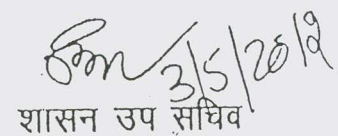 3/5/2012
शासन उप सचिव